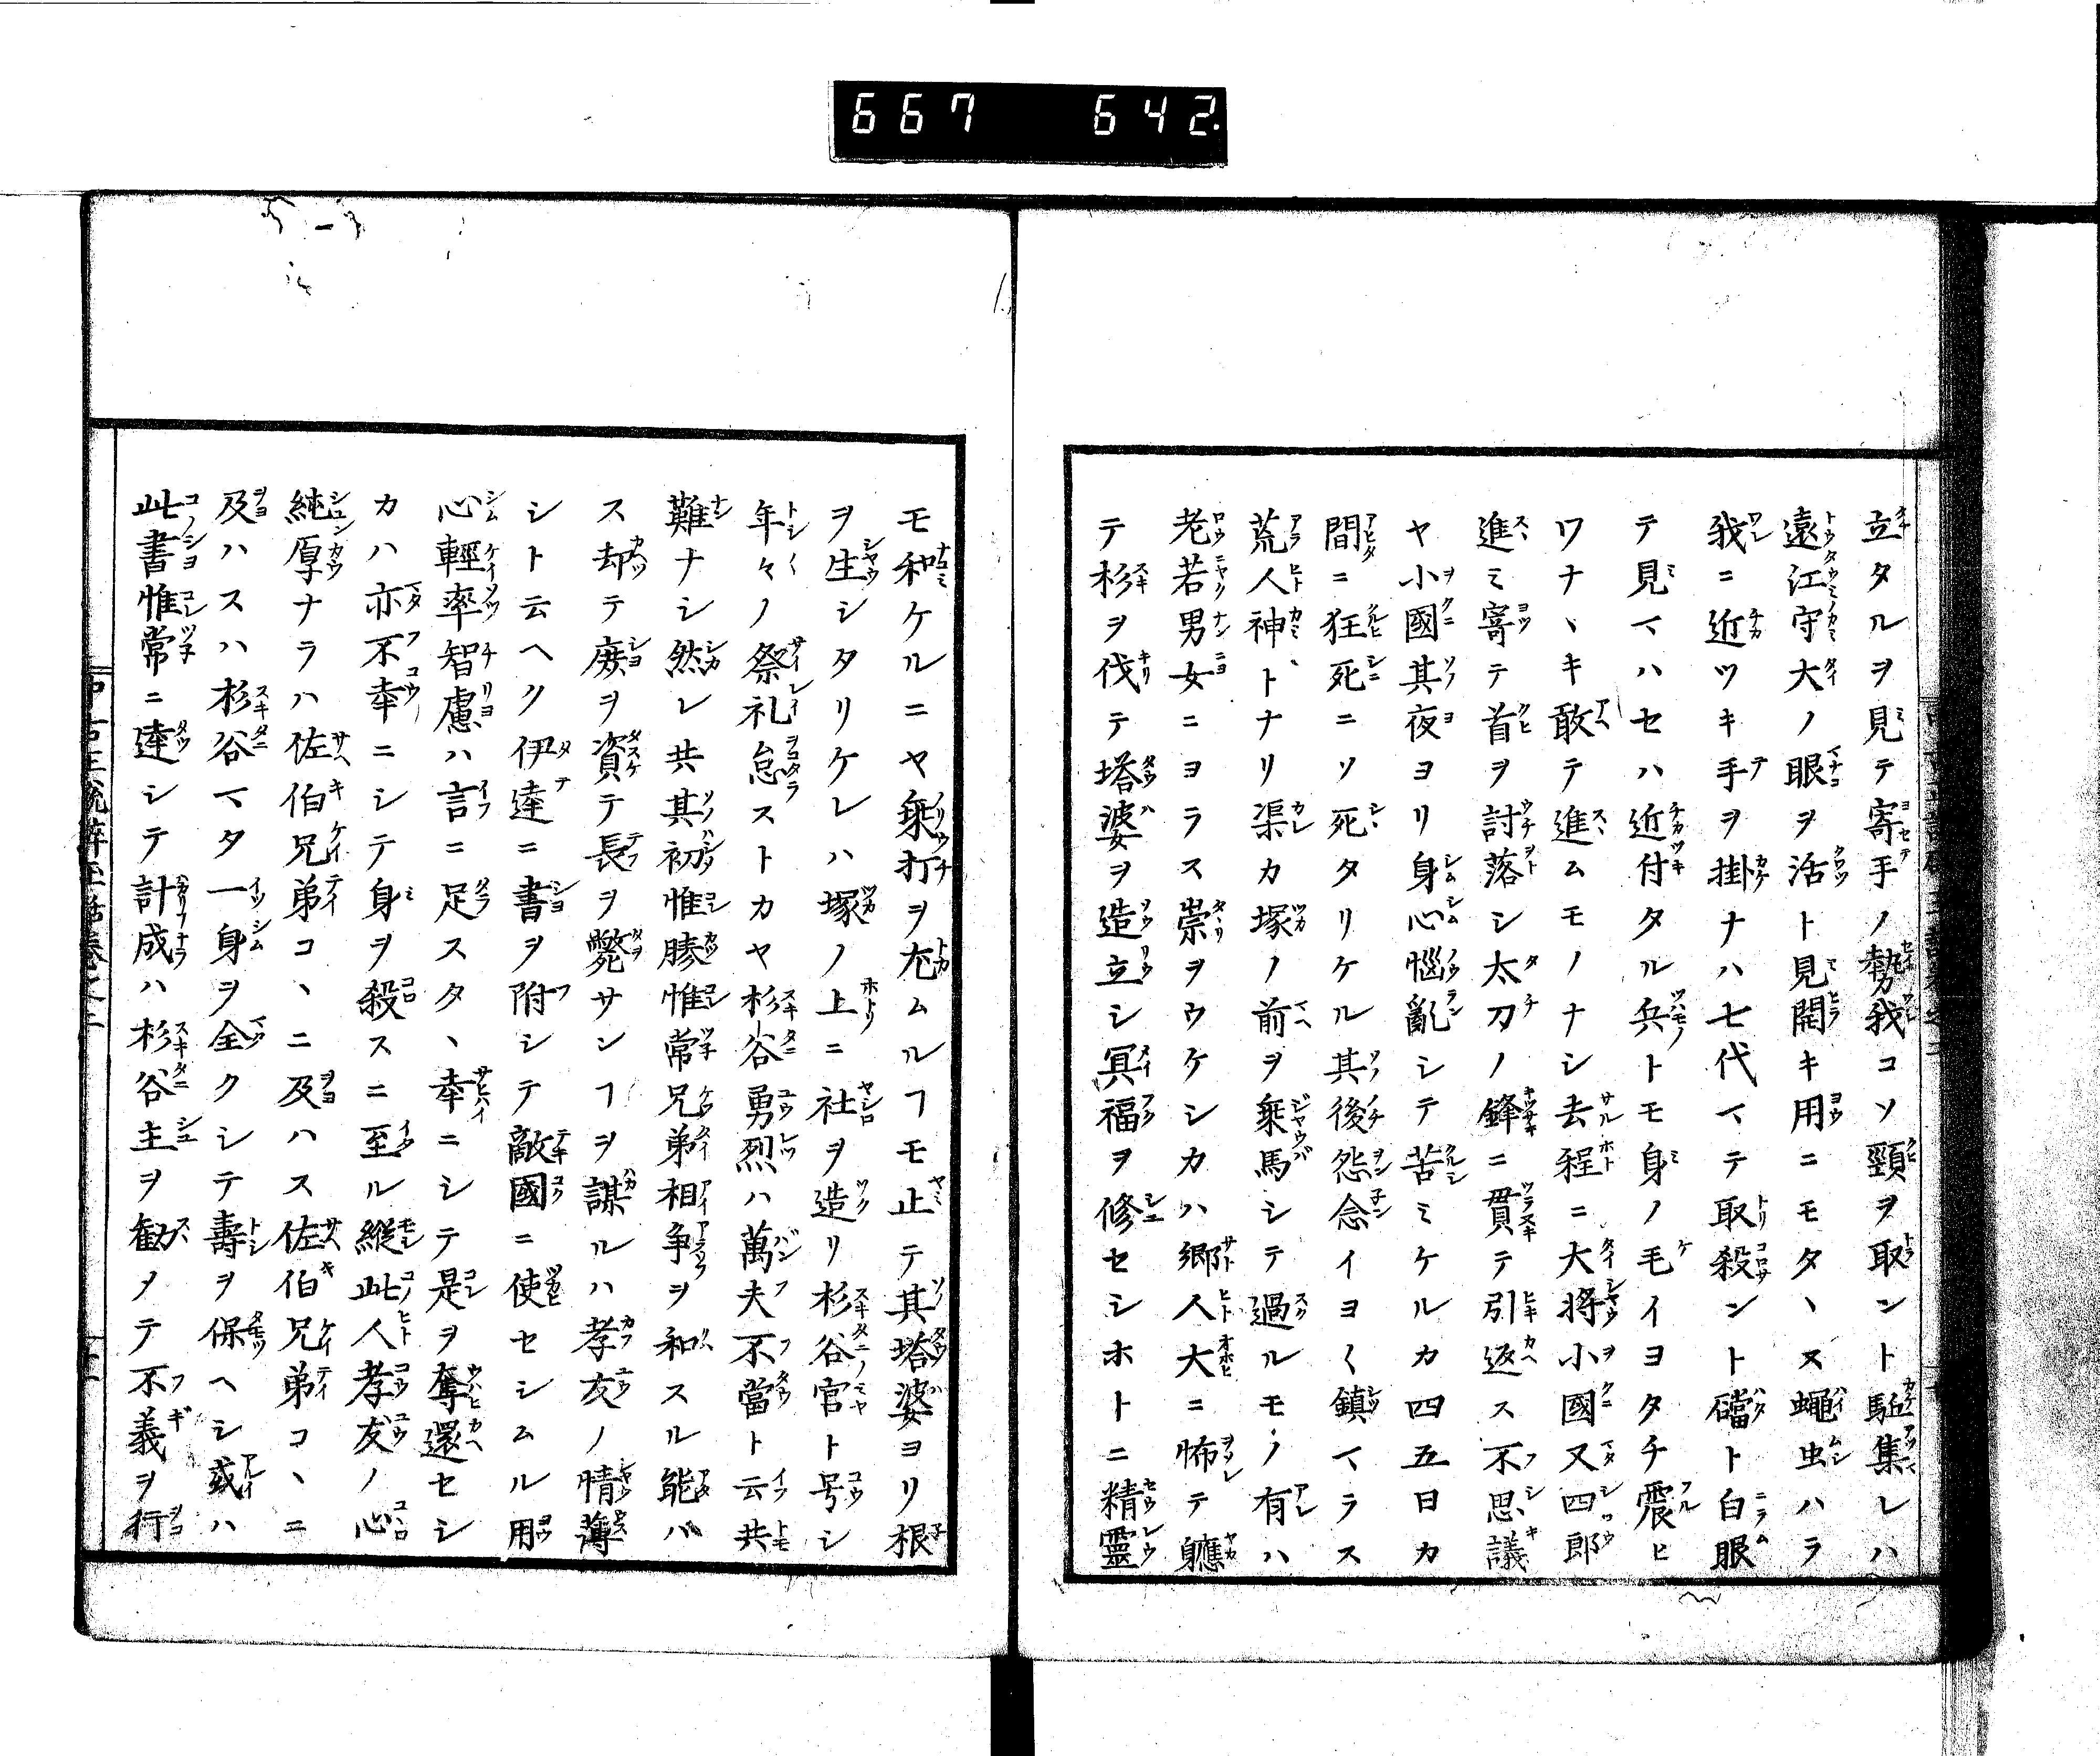 667 642
立タルヲ見テ寄手ノ勢我コソ頸ヲ取ント駈集レハ
遠江守大ノ眼ヲ活ト見開キ用ニモタヽヌ蠅虫ハラ
我ニ近ツキ手ヲ掛ナハ七代マテ取殺ント礑ト白眼
テ見マハセハ近付タル兵トモ身ノ毛イヨタチ震ヒ
ワナヽキ敢テ進ムモノナシ去程ニ大将小國又四郎
進ミ寄テ首ヲ討落シ太刀ノ鋒ニ貫テ引返ス不思議
ヤ小國其夜ヨリ身心惱亂シテ苦ミケルカ四五日カ
間ニ狂死ニソ死タリケル其後怨念イヨ〱鎮マラス
荒人神トナリ渠カ塚ノ前ヲ乗馬シテ過ルモノ有ハ
老若男女ニヨラス祟ヲウケシカハ郷人大ニ怖テ軈
テ杉ヲ伐テ塔婆ヲ造立シ冥福ヲ修セシホトニ精靈
モ和ケルニヤ乗打ヲ尤ムルヿモ止テ其塔婆ヨリ根
ヲ生シタリケレハ塚ノ上ニ社ヲ造リ杉谷官ト号シ
年々ノ祭礼怠ストカヤ杉谷勇烈ハ萬夫不當ト云共
難ナシ然レ共其初惟勝惟常兄弟相争ヲ和スル能バ
ス却テ廃ヲ資テ長ヲ斃サンヿヲ謀ルハ孝友ノ情薄
シト云ヘク伊達ニ書ヲ附シテ敵國ニ使セシムル用
心輕率智慮ハ言ニ足スタヽ幸ニシテ是ヲ奪還セシ
カハ亦不幸ニシテ身ヲ殺スニ至ル縦此人孝友ノ心
純厚ナラハ佐伯兄弟コヽニ及ハス佐伯兄弟コヽニ
及ハスハ杉谷マタ一身ヲ全クシテ壽ヲ保ヘシ或ハ
此書惟常ニ達シテ計成ハ杉谷主ヲ勧メテ不義ヲ行